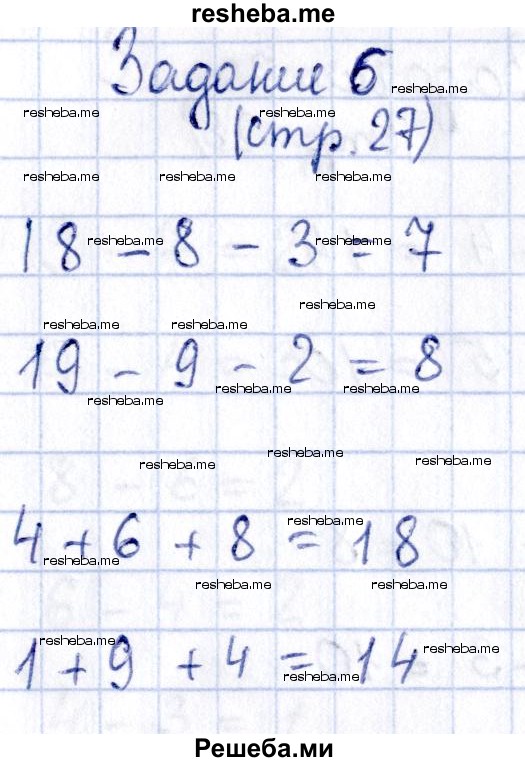 resheba.me
Задание 6
resheba.me
resheba.me resheba.me
(стр. 27)
resheba.me resheba.me resheba.me
18 - 8 - 3 = 7
resheba.me resheba.me
resheba.me
resheba.me resheba.me
19 - 9 - 2 = 8
resheba.me resheba.me
resheba.me
resheba.me
resheba.me resheba.me
resheba.me
4 + 6 + 8 = 18
resheba.me
resheba.me resheba.me
resheba.me resheba.me
1 + 9 + 4 = 14
resheba.me
Решеба.ми